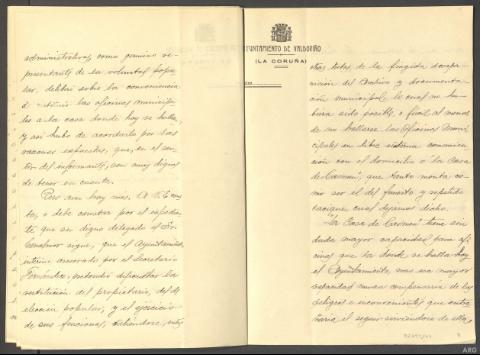 administrativa, como genuino re-
presentante de la voluntad popu-
lar, delibere sobre la conveniencia
de las oficinas municipa-
les a la casa donde hoy se halla,
y así hubo de acordarlo por las
razones expuestas, que, en el sen-
tir del informante, son muy dignas
de tener en cuenta.
Pero aun hay más. A V.E. cons-
ta, o debe constar por el expedien-
te que su digno delegado el Sr.
sigue, que el Ayuntamiento
interino asesorado por el Secretario
Fernández, la
sustitución del propietario, del de
elección popular, y el ejercicio
de sus funciones,
AYUNTAMIENTO DE VALDOVIÑO
(LA CORUÑA)
otros de la fingida desapa-
rición del Archivo y documenta-
ción municipal, lo cual no hu-
biera sido posible, o fácil al menos
de no hallarse las oficinas muni-
cipales en libre comunica-
ción con el domicilio o "la Casa
de Carmen", que tanto monta, co-
mo ser el del funesto y repetido
cacique cual dejamos dicho.
"La Casa de Carmen" tiene sin
duda mayor capacidad para ofi-
cinas que la donde se halla hoy
el Ayuntamiento, mas esa mayor
capacidad nunca compensaría de los
peligros e inconvenientes que entra-
ñaría, el seguir sirviéndose de ella,
ARG